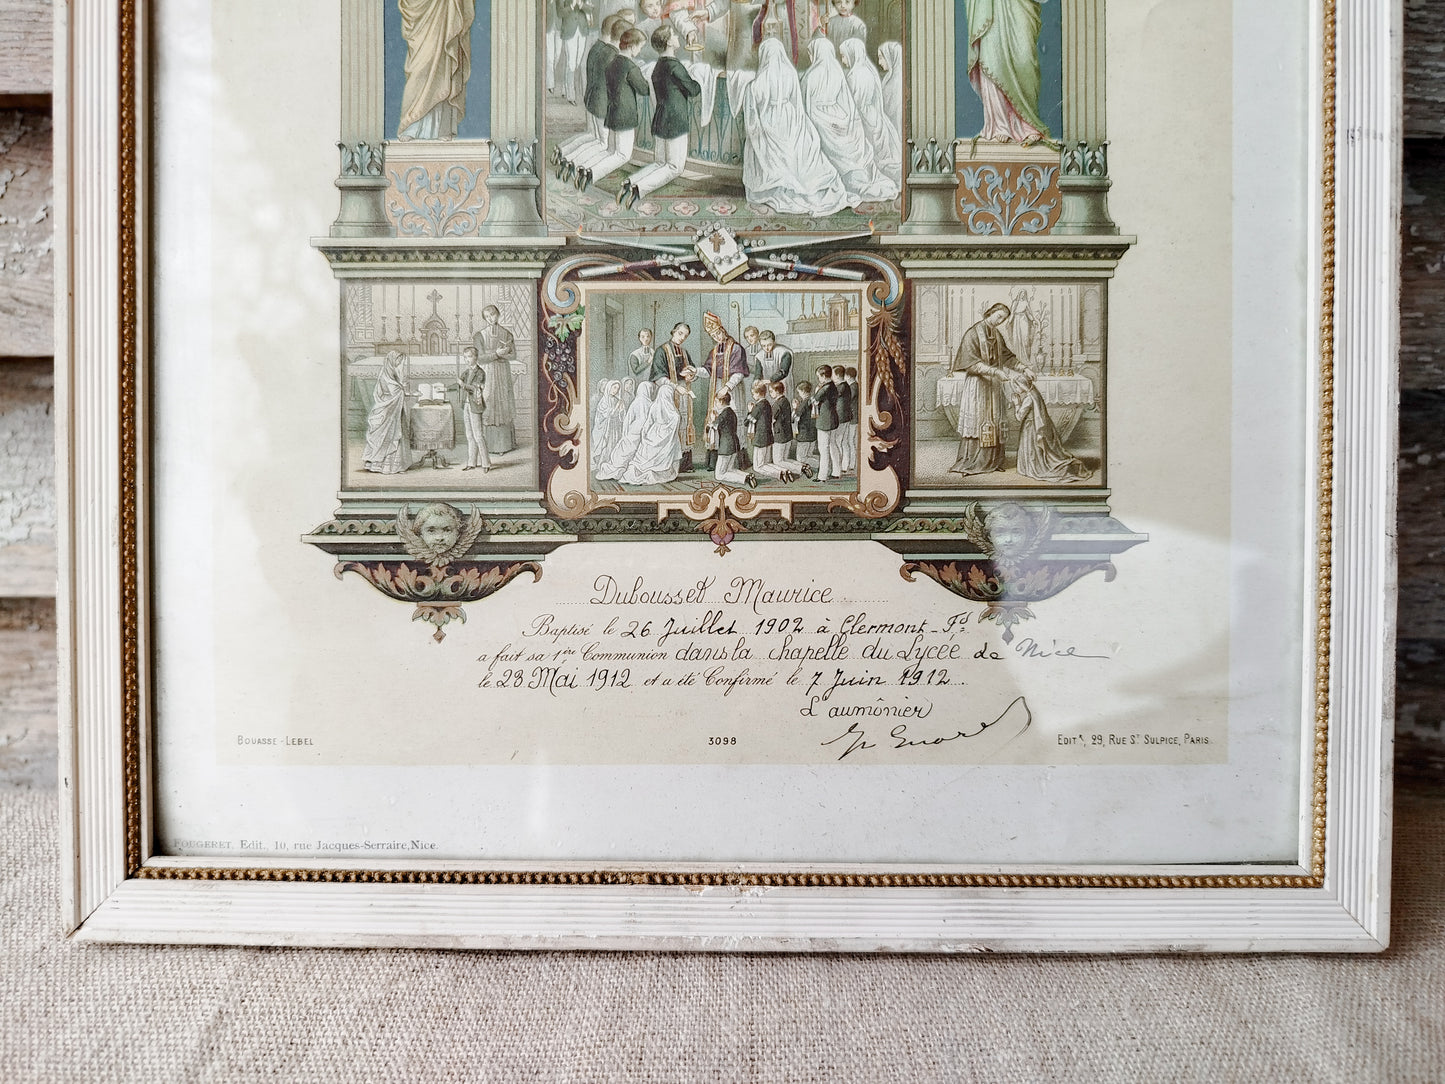 Dubousset Maurice
Baptisé le 26 Juillet 1902 à Clermont-Fd
a fait sa 1ère Communion dans la chapelle du Lycée de Nice
le 23 Mai 1912 et a été Confirmé le 7 Juin 1912.
L'aumônier
BOUASSE-LEBEL
3098
EDITR, 29, RUE ST SULPICE, PARIS.
FOUGERET, Edit., 10, rue Jacques-Serraire, Nice.